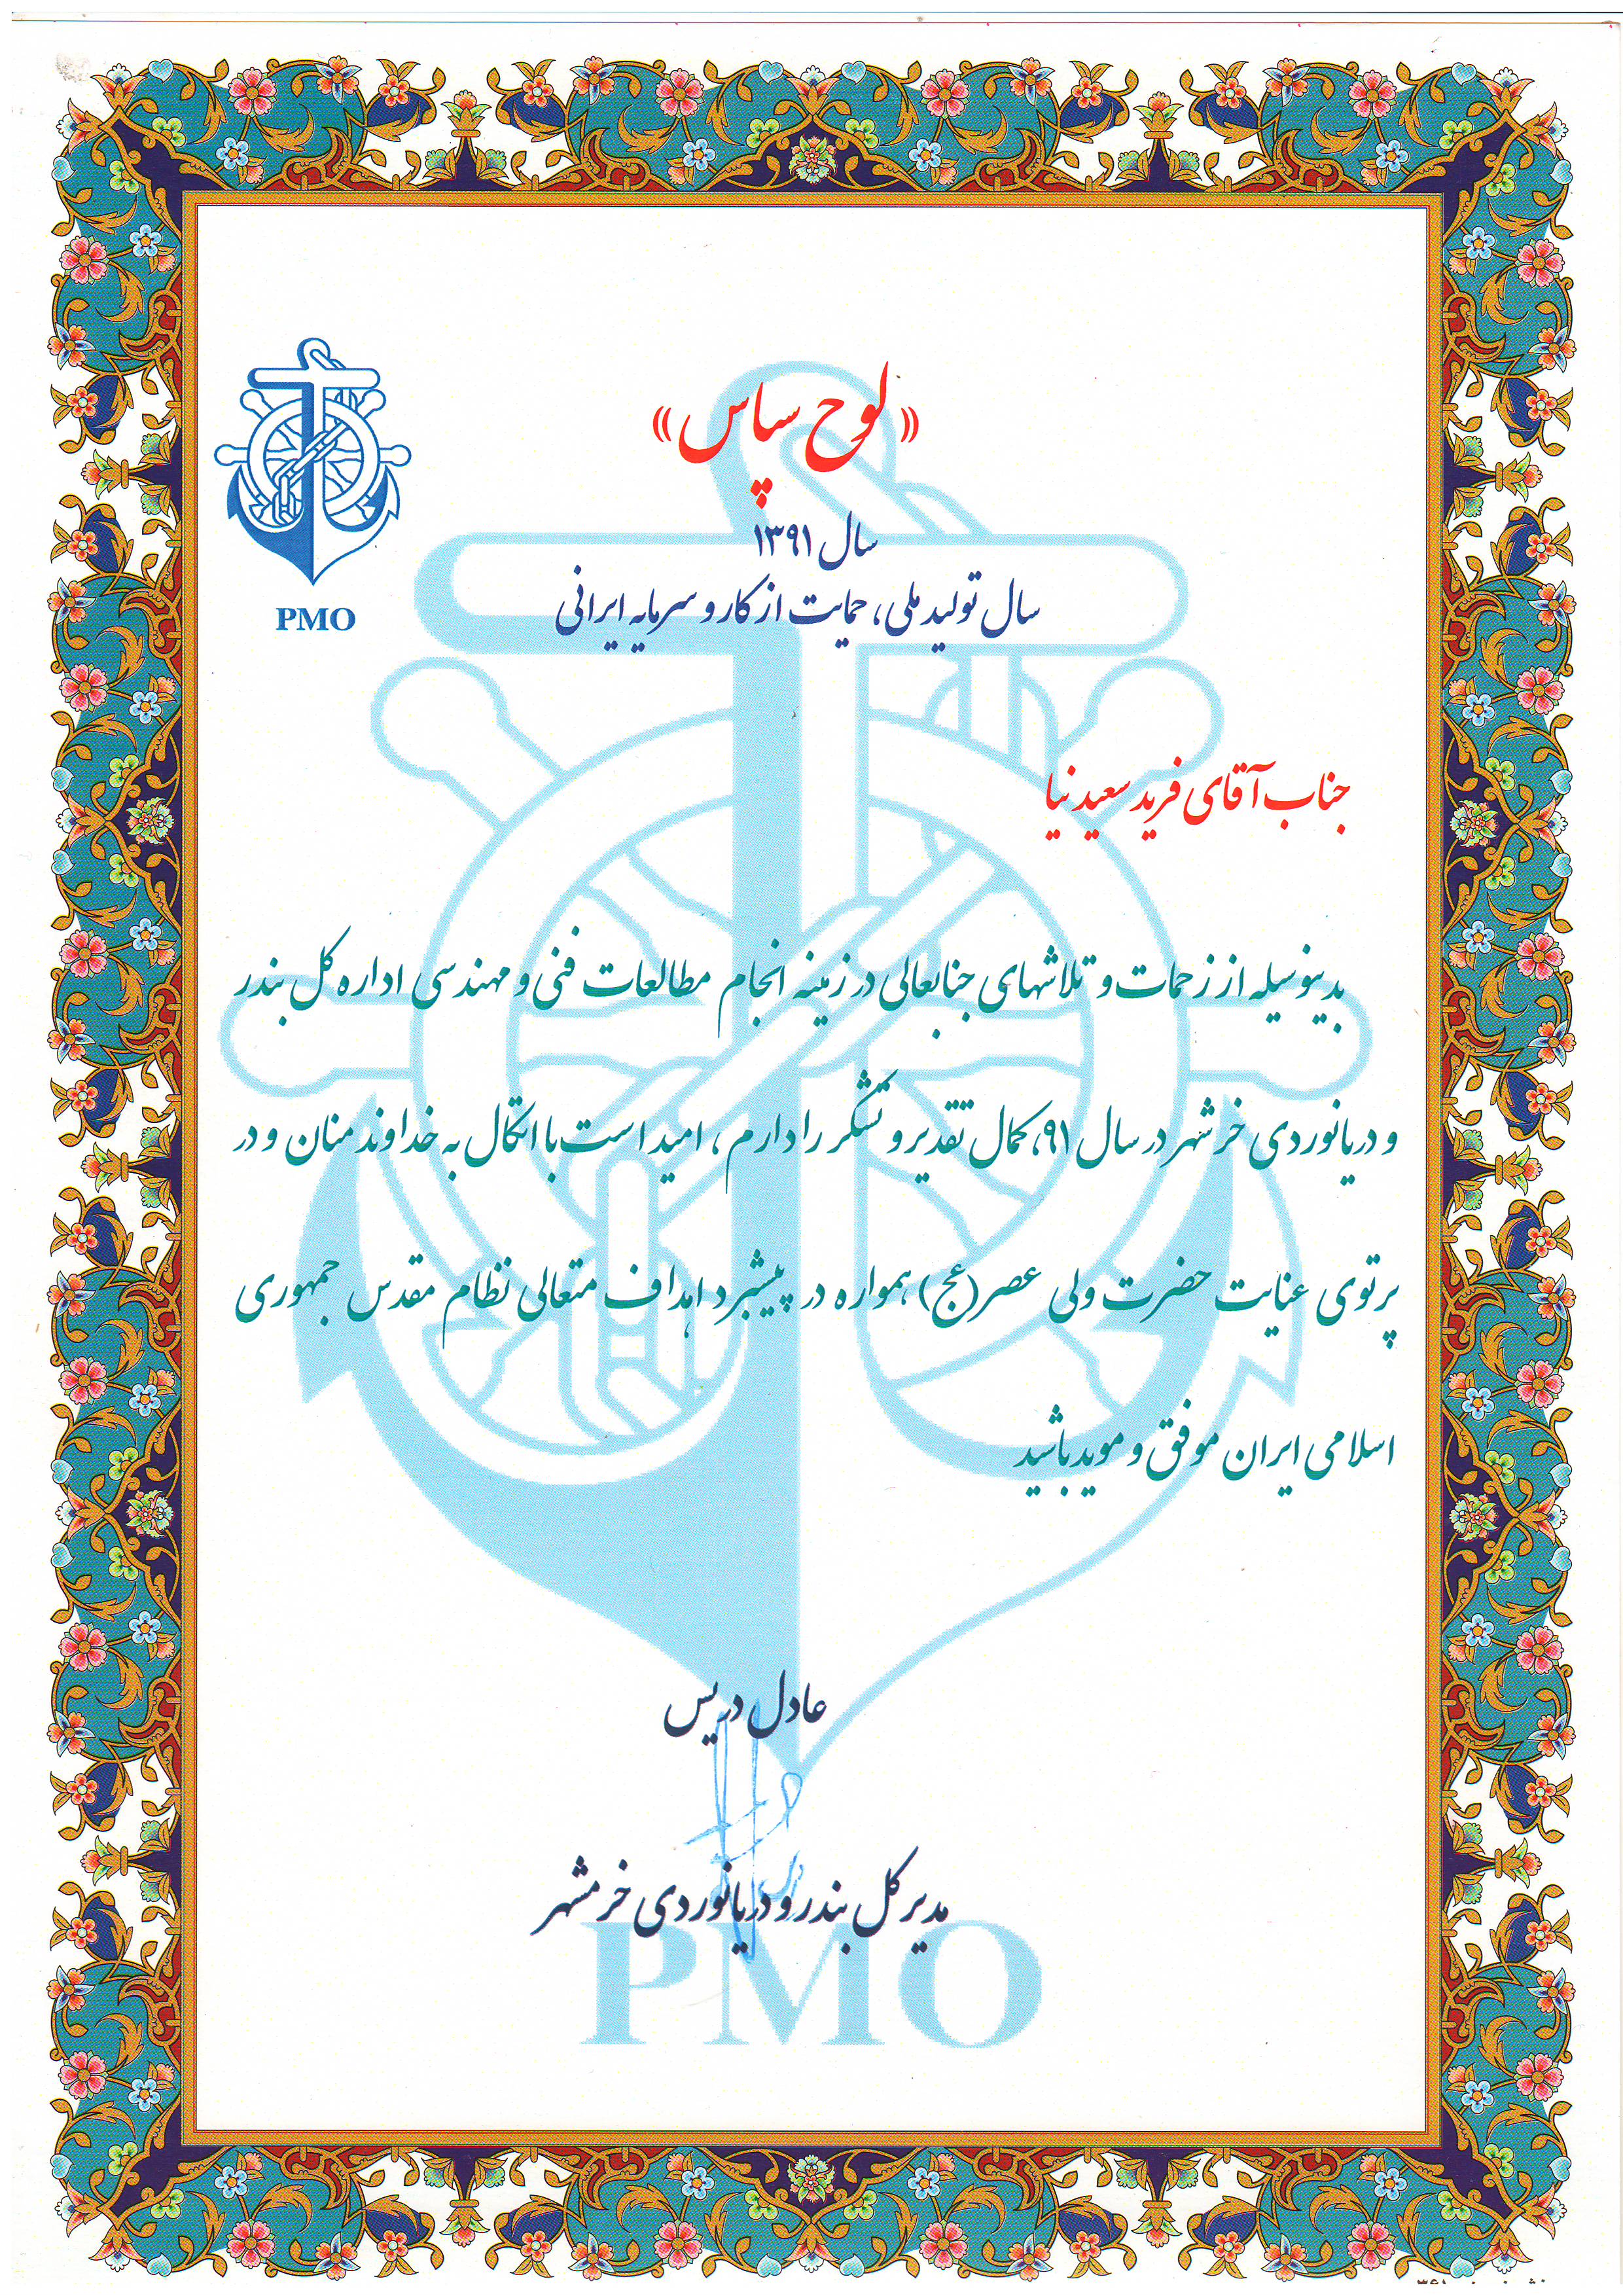 « لوح سپاس »
سال ۱۳۹۱
سال تولید ملی، حمایت از کار و سرمایه ایرانی
PMO
جناب آقای فرید سعید نیا
بدینوسیله از زحمات و تلاشهای جنابعالی در زمینه انجام مطالعات فنی و مهندسی اداره کل بندر
و دریانوردی خرمشهر در سال ۹۱، کمال تقدیر و تشکر را دارم، امید است با اتکال به خداوند منان و در
پرتوی عنایت حضرت ولی عصر(عج) همواره در پیشبرد اهداف متعالی نظام مقدس جمهوری
اسلامی ایران موفق و موید باشید
عادل دریس
مدیر کل بندر و دریانوردی خرمشهر
PMO